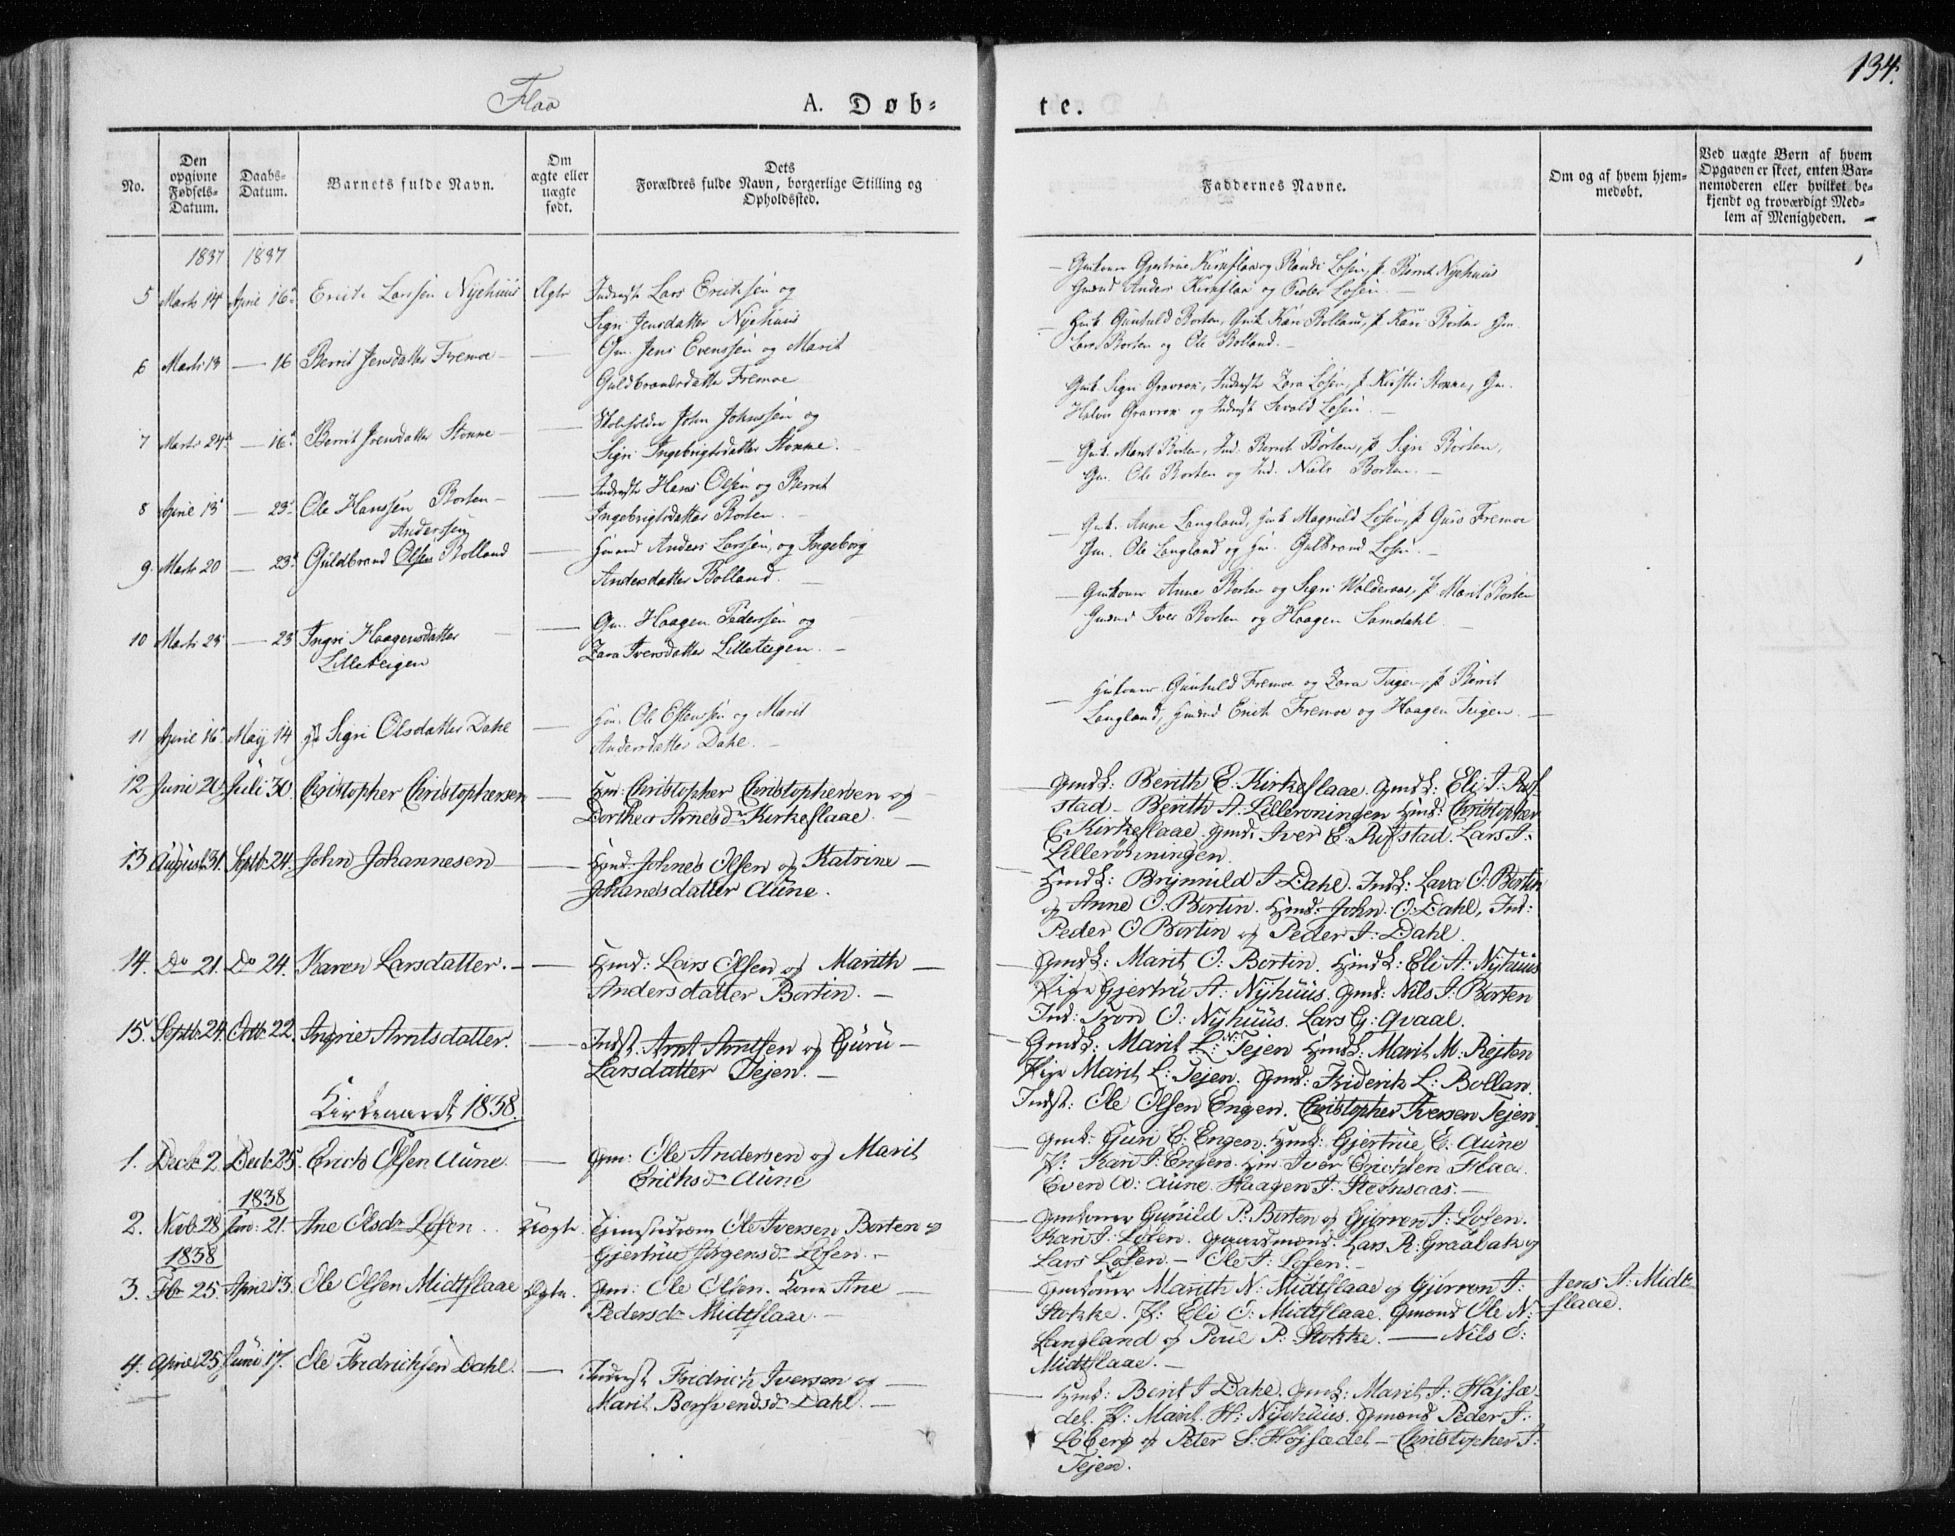 134.
Flaa
A. Døb-
te.
No.
Den opgivne Fødsels-Datum.
Daabs-Datum.
Barnets fulde Navn.
Om ægte eller uægte født.
Dets Forældres fulde Navn, borgerlige Stilling og Opholdssted.
Faddernes Navne.
Om og af hvem hjemmedøbt.
Ved uægte Børn af hvem Opgaven er skeet, enten Barnemoderen eller hvilket bekjendt og troværdigt Medlem af Menigheden.
1837 1837
5 Marts 14 April 16 Erich Larssen Nyehuus Ægte Inderst Lars Erichsen og
Sigri Jensdatter Nyehuus
Gmkoner Gjertrue Kirkflaa og Randi Losen, p. Berrit Nyehuus
Gmænd Anders Kirkflaa og Peder Losen.
6 Marts 13 — 16 Berrit Jensdatter Fremoe — Gm. Jens Evenssen og Marit
Guldbrandsdatter Fremoe
Hmk Gunhild Borten, Gmk Kari Bolland, p. Kari Borten Gm.
Lars Borten og Ole Bolland.
7 Marts 24 — 16 Berrit Jonsdatter Stonne — Skoleholder John Johnssen og
Sigri Ingebrigtsdatter Stonne.
Gmk Sigri Gravrok, Inderste Zara Losen, p. Kirsti Stonne, Gm.
Halvor Gravrok og Inderst Sevald Losen.
8 April 13 — 23 Ole Hanssen Borten — Inderste Hans Olsen og Berrit
Ingebrigtsdatter Borten.
Gmk. Marit Borten, Ind. Berrit Borten, p. Sigri Borten,
Gm. Ole Borten og Ind. Niels Borten.
Anderssen
9 Marts 20 — 23 Guldbrand Olsen Bolland — Hmand Anders Larssen, og Ingeborg
Andersdatter Bolland.
Gmk. Anne Langland, Hmk Magnild Losen, p. Guro Fremoe
Gm. Ole Langland og Hm. Gulbrand Losen.
10 Marts 23 — 23 Ingri Haagensdatter
Lilleteigen — Gm. Haagen Pederssen og
Zara Iversdatter Lilleteigen.
Gmkoner Anne Borten og Sigri Walderaas, p. Marit Borten
Gmænd Iver Borten og Haagen Samdahl.
11 April 16 May 14 Sigri Olsdatter Dahl — Hm. Ole Estenssen og Marit
Andersdatter Dahl.
Hmkoner Gunhild Fremoe og Zara Teigen, p. Berrit
Langland, Hmænd Erich Fremoe og Haagen Teigen.
12 Juni 20 Juli 30. Christopher Christophersen — Hm: Christopher Christophersen og
Dorthea Arnesdr Kirkeflaae.
Gmdk: Berith E. Kirkeflaae. Gmdk: Eli I. Ruf
stad — Berith A. Lillerøningen Hmd: Christopher
C. Kirkeflaae. Gmd: Iver E. Rufstad. Lars I.
Lillerønningen.
13 August 31. Septb: 24. John Johannesen — Hmd: Johnes Olsen og Katrine —
Johanesdatter Aune.
Hmdk: Brynnild I Dahl. Indk: Lava O: Bortin
og Anne O: Bortin. Hmd: John O: Dahl, Ind:
Peder O Bortin og Peder I: Dahl.
14. Do 21. Do 24. Karen Larsdatter. — Hmd: Lars Olsen og Marith —
Andersdatter Bortin. —
Gmdk: Marit O: Bortin. Hmdk: Eli A: Nyhuus
Pige Gjertru A: Nyhuus. Gmd: Nils I: Borten
Ind: Tron O: Nyhuus. Lars G: Qvaal.
15. Septb: 24. Octb: 22. Ingrie Arntsdatter. — Indst. Arnt Arntsen og Guru —
Larsdatter Tejen. —
Gmdk: Marit L: Tejen Hmdk: Marit M: Rejten
Pige Marit L: Tejen. Gmd: Friderik L: Bollan.
Indst: Ole Olsen Engen. Christopher Iversen Tejen.
Kirkeaaret 1838.
1. Decb: 2. Decb: 25. Erich Olsen Aune. — Gm: Ole Andersen og Marit
Erichsdr Aune
Gmk: Guri E: Engen. Hmk: Gjertrue E: Aune
P: Kari I: Engen. Hm Iver Erichsen Flaa.
Even O: Aune. Haagen I: Steensaas. —
1838
2. Novb: 28 Jan: 21. Ane Olsdr Losen. Uægte. Ole Iversen Borten og
Gjertrue Jørgensdr Losen. —
Gmkoner Gunild P: Borten og Gjørron I: Losen.
Kari I: Losen. Gaardmænd: Lars R: Graabak og
Lars Losen. — Ole I: Losen. —
1838
3. Fbr 25. April 13. Ole Olsen Midtflaae Ægte. Gm: Ole Olsen. Kone Ane —
Pedersdr Midtflaae. —
Gmkoner Marith N: Midtflaae og Gjørron I:
Stokke. P: Eli O: Midtflaae. Gmænd Ole N:
Langland og Poul P: Stokke. — Nils O:
Midtflaae. —
Jens I: Midt
flaae.
4. April 25. Juni 17. Ole Fredrichsen Dahl. — Inderst Fridrich Iversen og —
Marit Borsvendsdr Dahl. —
Hmk: Berit I Dahl. Gmk: Marit I: Højsæ-
del. P: Marit H: Nyehuus. Gmænd Peder I:
Loberg og Peter S: Højsædel — Christopher I:
Tejen.